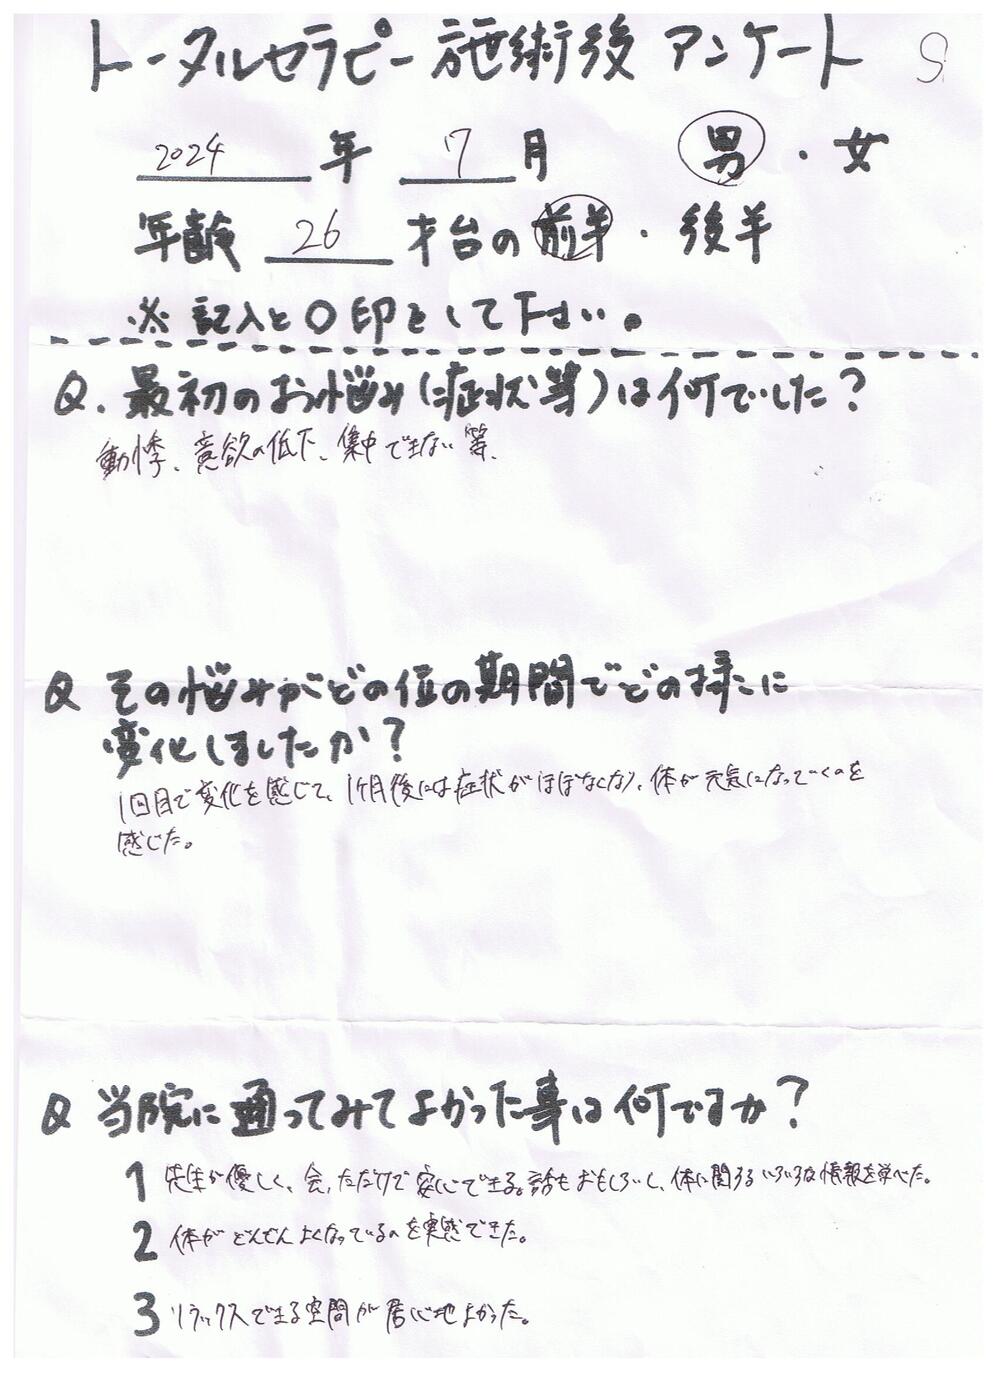 トータルセラピー施術後 アンケート 9
2024 年 7 月 男・女
年齢 26 才台の前半・後半
※ 記入と○印をして下さい。
Q. 最初のお悩み(症状等)は何でした?
動悸、意欲の低下、集中できない等、
Q その悩みがどの位の期間でどの様に
変化しましたか?
1回目で変化を感じて、1ヶ月後には症状がほぼなくなり、体が元気になっていくのを
感じた。
Q 当院に通ってみてよかった事は何ですか?
1 先生が優しく、会っただけで安心できる。話もおもしろいし、体に関するいろいろな情報を学べた。
2 体がどんどんよくなっているのを実感できた。
3 リラックスできる空間が居心地よかった。